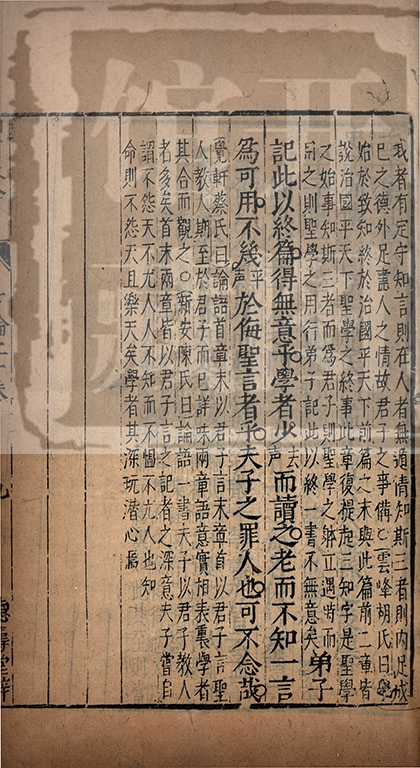 我者有定守知言則在人者無遁情知斯三者則內足成
己之德外足盡人之情故君子之事備○雲峰胡氏曰學
始於致知終於治國平天下前篇之末與此篇前二章皆
說治國平天下聖學之終事此章復提起三知字是聖學
之始事知斯三者而爲君子則聖學之體立遇時而
用之則聖學之用行弟子記此以終一書不無意矣弟子
記此以終篇得無意乎學者少去聲而讀之老而不知一言
爲可用不幾平聲於侮聖言者乎夫子之罪人也可不念哉
覺軒蔡氏曰論語首章末以君子言末章首以君子言聖
人教人期至於君子而已詳味兩章語意實相表裏學者
其合而觀之○新安陳氏曰論語一書夫子以君子教人
者多矣首末兩章皆以君子言之記者之深意夫子嘗自
謂不怨天不尤人人不知而不慍不尤人也知
命則不怨天且樂天矣學者其深玩潛心焉
九